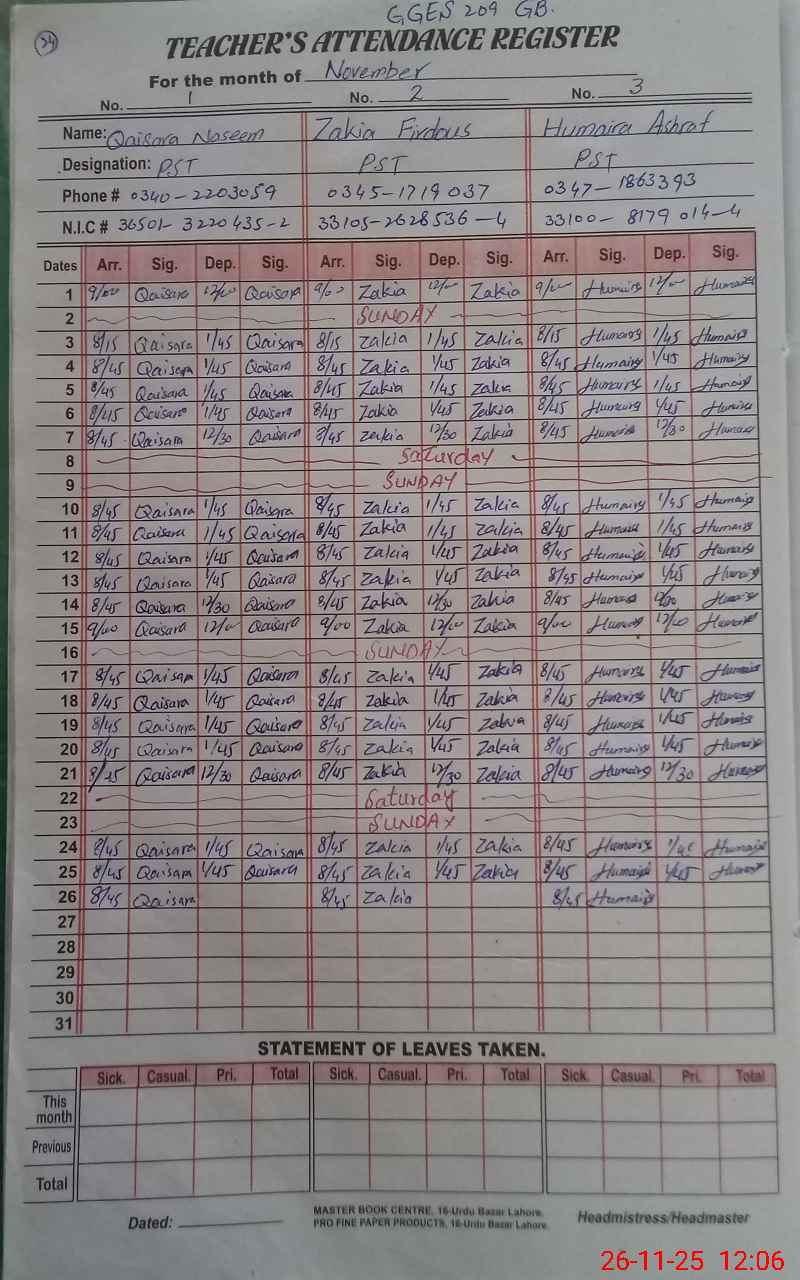 GGES 209 GB.
24
TEACHER'S ATTENDANCE REGISTER
For the month of November
No. 1 No. 2 No. 3
Name: Qaisara Naseem Zakia Firdous Humaira Ashraf
Designation: PST PST PST
Phone # 0340-2203059 0345-1719037 0347-1863393
N.I.C # 36501-3220435-2 33105-2628536-4 33100-8179014-4
Dates Arr. Sig. Dep. Sig. Arr. Sig. Dep. Sig. Arr. Sig. Dep. Sig.
1 9/00 Qaisara 12/00 Qaisara 9/00 Zakia 12/00 Zakia 9/00 Humaira 12/00 Humaira
2 SUNDAY
3 8/15 Qaisara 1/45 Qaisara 8/15 Zakia 1/45 Zakia 8/15 Humaira 1/45 Humaira
4 8/45 Qaisara 1/45 Qaisara 8/45 Zakia 1/45 Zakia 8/45 Humaira 1/45 Humaira
5 8/45 Qaisara 1/45 Qaisara 8/45 Zakia 1/45 Zakia 8/45 Humaira 1/45 Humaira
6 8/45 Qaisara 1/45 Qaisara 8/45 Zakia 1/45 Zakia 8/45 Humaira 1/45 Humaira
7 8/45 Qaisara 12/30 Qaisara 8/45 Zakia 12/30 Zakia 8/45 Humaira 12/30 Humaira
8 Saturday
9 SUNDAY
10 8/45 Qaisara 1/45 Qaisara 8/45 Zakia 1/45 Zakia 8/45 Humaira 1/45 Humaira
11 8/45 Qaisara 1/45 Qaisara 8/45 Zakia 1/45 Zakia 8/45 Humaira 1/45 Humaira
12 8/45 Qaisara 1/45 Qaisara 8/45 Zakia 1/45 Zakia 8/45 Humaira 1/45 Humaira
13 8/45 Qaisara 1/45 Qaisara 8/45 Zakia 1/45 Zakia 8/45 Humaira 1/45 Humaira
14 8/45 Qaisara 12/30 Qaisara 8/45 Zakia 12/30 Zakia 8/45 Humaira 12/30 Humaira
15 9/00 Qaisara 12/00 Qaisara 9/00 Zakia 12/00 Zakia 9/00 Humaira 12/00 Humaira
16 SUNDAY
17 8/45 Qaisara 1/45 Qaisara 8/45 Zakia 1/45 Zakia 8/45 Humaira 1/45 Humaira
18 8/45 Qaisara 1/45 Qaisara 8/45 Zakia 1/45 Zakia 8/45 Humaira 1/45 Humaira
19 8/45 Qaisara 1/45 Qaisara 8/45 Zakia 1/45 Zakia 8/45 Humaira 1/45 Humaira
20 8/45 Qaisara 1/45 Qaisara 8/45 Zakia 1/45 Zakia 8/45 Humaira 1/45 Humaira
21 Qaisara 12/30 Qaisara 8/45 Zakia 12/30 Zakia 8/45 Humaira 12/30 Humaira
22 Saturday
23 SUNDAY
24 8/45 Qaisara 1/45 Qaisara 8/45 Zakia 1/45 Zakia 8/45 Humaira 1/45 Humaira
25 8/45 Qaisara 1/45 Qaisara 8/45 Zakia 1/45 Zakia 8/45 Humaira 1/45 Humaira
26 8/45 Qaisara 8/45 Zakia 8/45 Humaira
27
28
29
30
31
STATEMENT OF LEAVES TAKEN.
Sick. Casual. Pri. Total Sick. Casual. Pri. Total Sick. Casual. Pri. Total
This
month
Previous
Total
Dated: MASTER BOOK CENTRE, 16-Urdu Bazar Lahore. Headmistress/Headmaster
PRO FINE PAPER PRODUCTS, 16-Urdu Bazar Lahore.
26-11-25 12:06